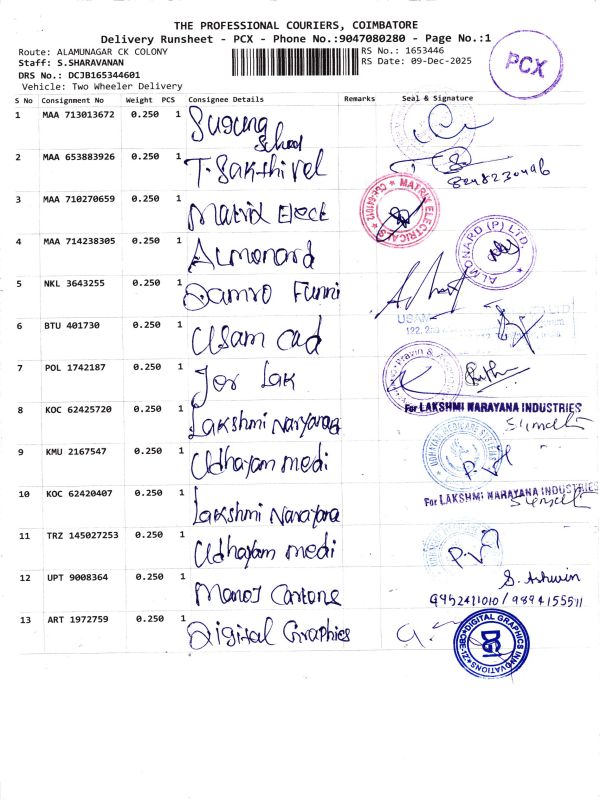 THE PROFESSIONAL COURIERS, COIMBATORE
Delivery Runsheet - PCX - Phone No.:9047080280 - Page No.:1
Route: ALAMUNAGAR CK COLONY
RS No.: 1653446
Staff: S.SHARAVANAN
RS Date: 09-Dec-2025
DRS No.: DCJB165344601
Vehicle: Two Wheeler Delivery
PCX
S No Consignment No Weight PCS Consignee Details Remarks Seal & Signature
1 MAA 713013672 0.250 1 Suguna School
2 MAA 653883926 0.250 1 T. Sakthivel
3 MAA 710270659 0.250 1 Matrix Elect MATRIX ELECTRICALS
4 MAA 714238305 0.250 1 Almonard ALMONARD (P) LTD.
5 NKL 3643255 0.250 1 Damro Furni
6 BTU 401730 0.250 1 Usam cad USAM
7 POL 1742187 0.250 1 Jor Lak
8 KOC 62425720 0.250 1 Lakshmi Narayana For LAKSHMI NARAYANA INDUSTRIES
9 KMU 2167547 0.250 1 Udhayam medi
10 KOC 62420407 0.250 1 Lakshmi Narayana For LAKSHMI NARAYANA INDUSTRIES
11 TRZ 145027253 0.250 1 Udhayam medi
12 UPT 9008364 0.250 1 Manoj Cartone S. Ashwin
9952411010 / 9894155511
13 ART 1972759 0.250 1 Digital Graphics DIGITAL GRAPHICS INNOVATIONS